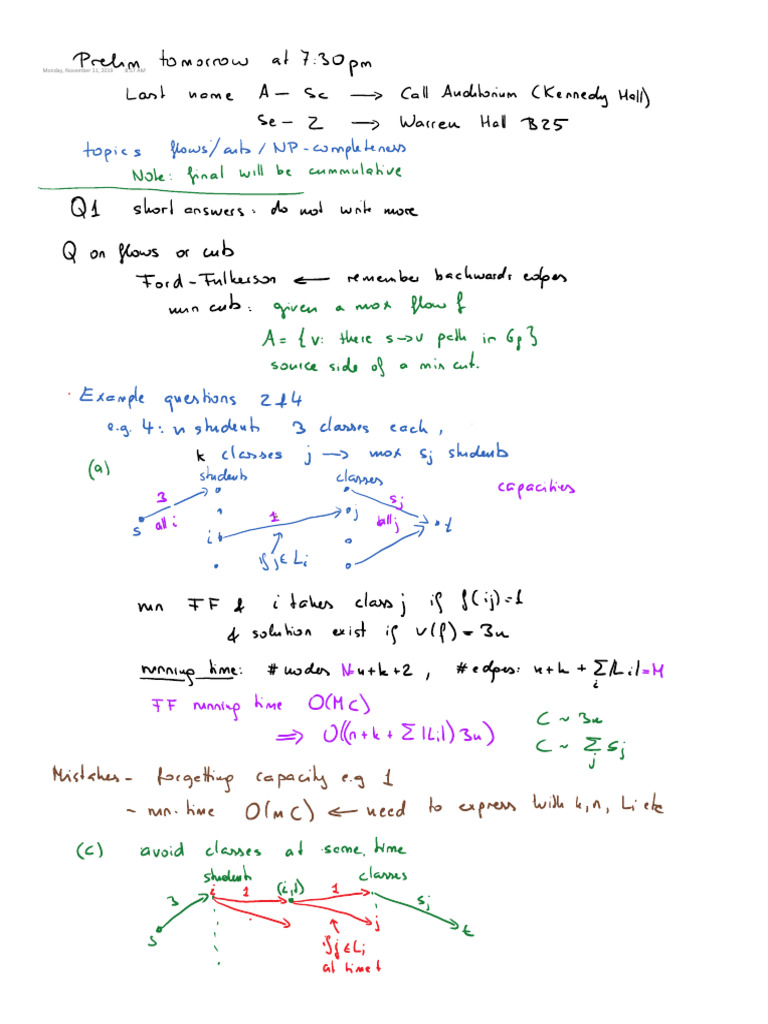 Prelim tomorrow at 7:30pm
Monday, November 11, 2019 8:57 AM
Last name A - Sc → Call Auditorium (Kennedy Hall)
Se - Z → Warren Hall B25
topics flows/cuts / NP-completeness
Note: final will be cummulative
Q1 short answers: do not write more
Q on flows or cuts
Ford-Fulkerson ← remember backwards edges
min cuts: given a max flow f
A = { v: there s→v path in Gf }
source side of a min cut.
Example questions 2 & 4
e.g. 4: n students 3 classes each,
k classes j → max sj students
(a)
students classes
capacities
3 sj
all i 1 all j
s i j t
if j ∈ Li
run FF & i takes class j if f(ij)=1
& solution exist if v(f) = 3n
running time: # nodes N=n+k+2, # edges: n+k+ Σ|Li| = M
i
FF running time O(MC)
⇒ O((n+k+ Σ|Li|) 3n)
C ~ 3n
C ~ Σ sj
j
Mistakes - forgetting capacity e.g 1
- run. time O(MC) ← need to express with k, n, Li etc
(c) avoid classes at some time
students classes
i 1 (i,t) 1
3 sj
s j t
if j ∈ Li
at time t